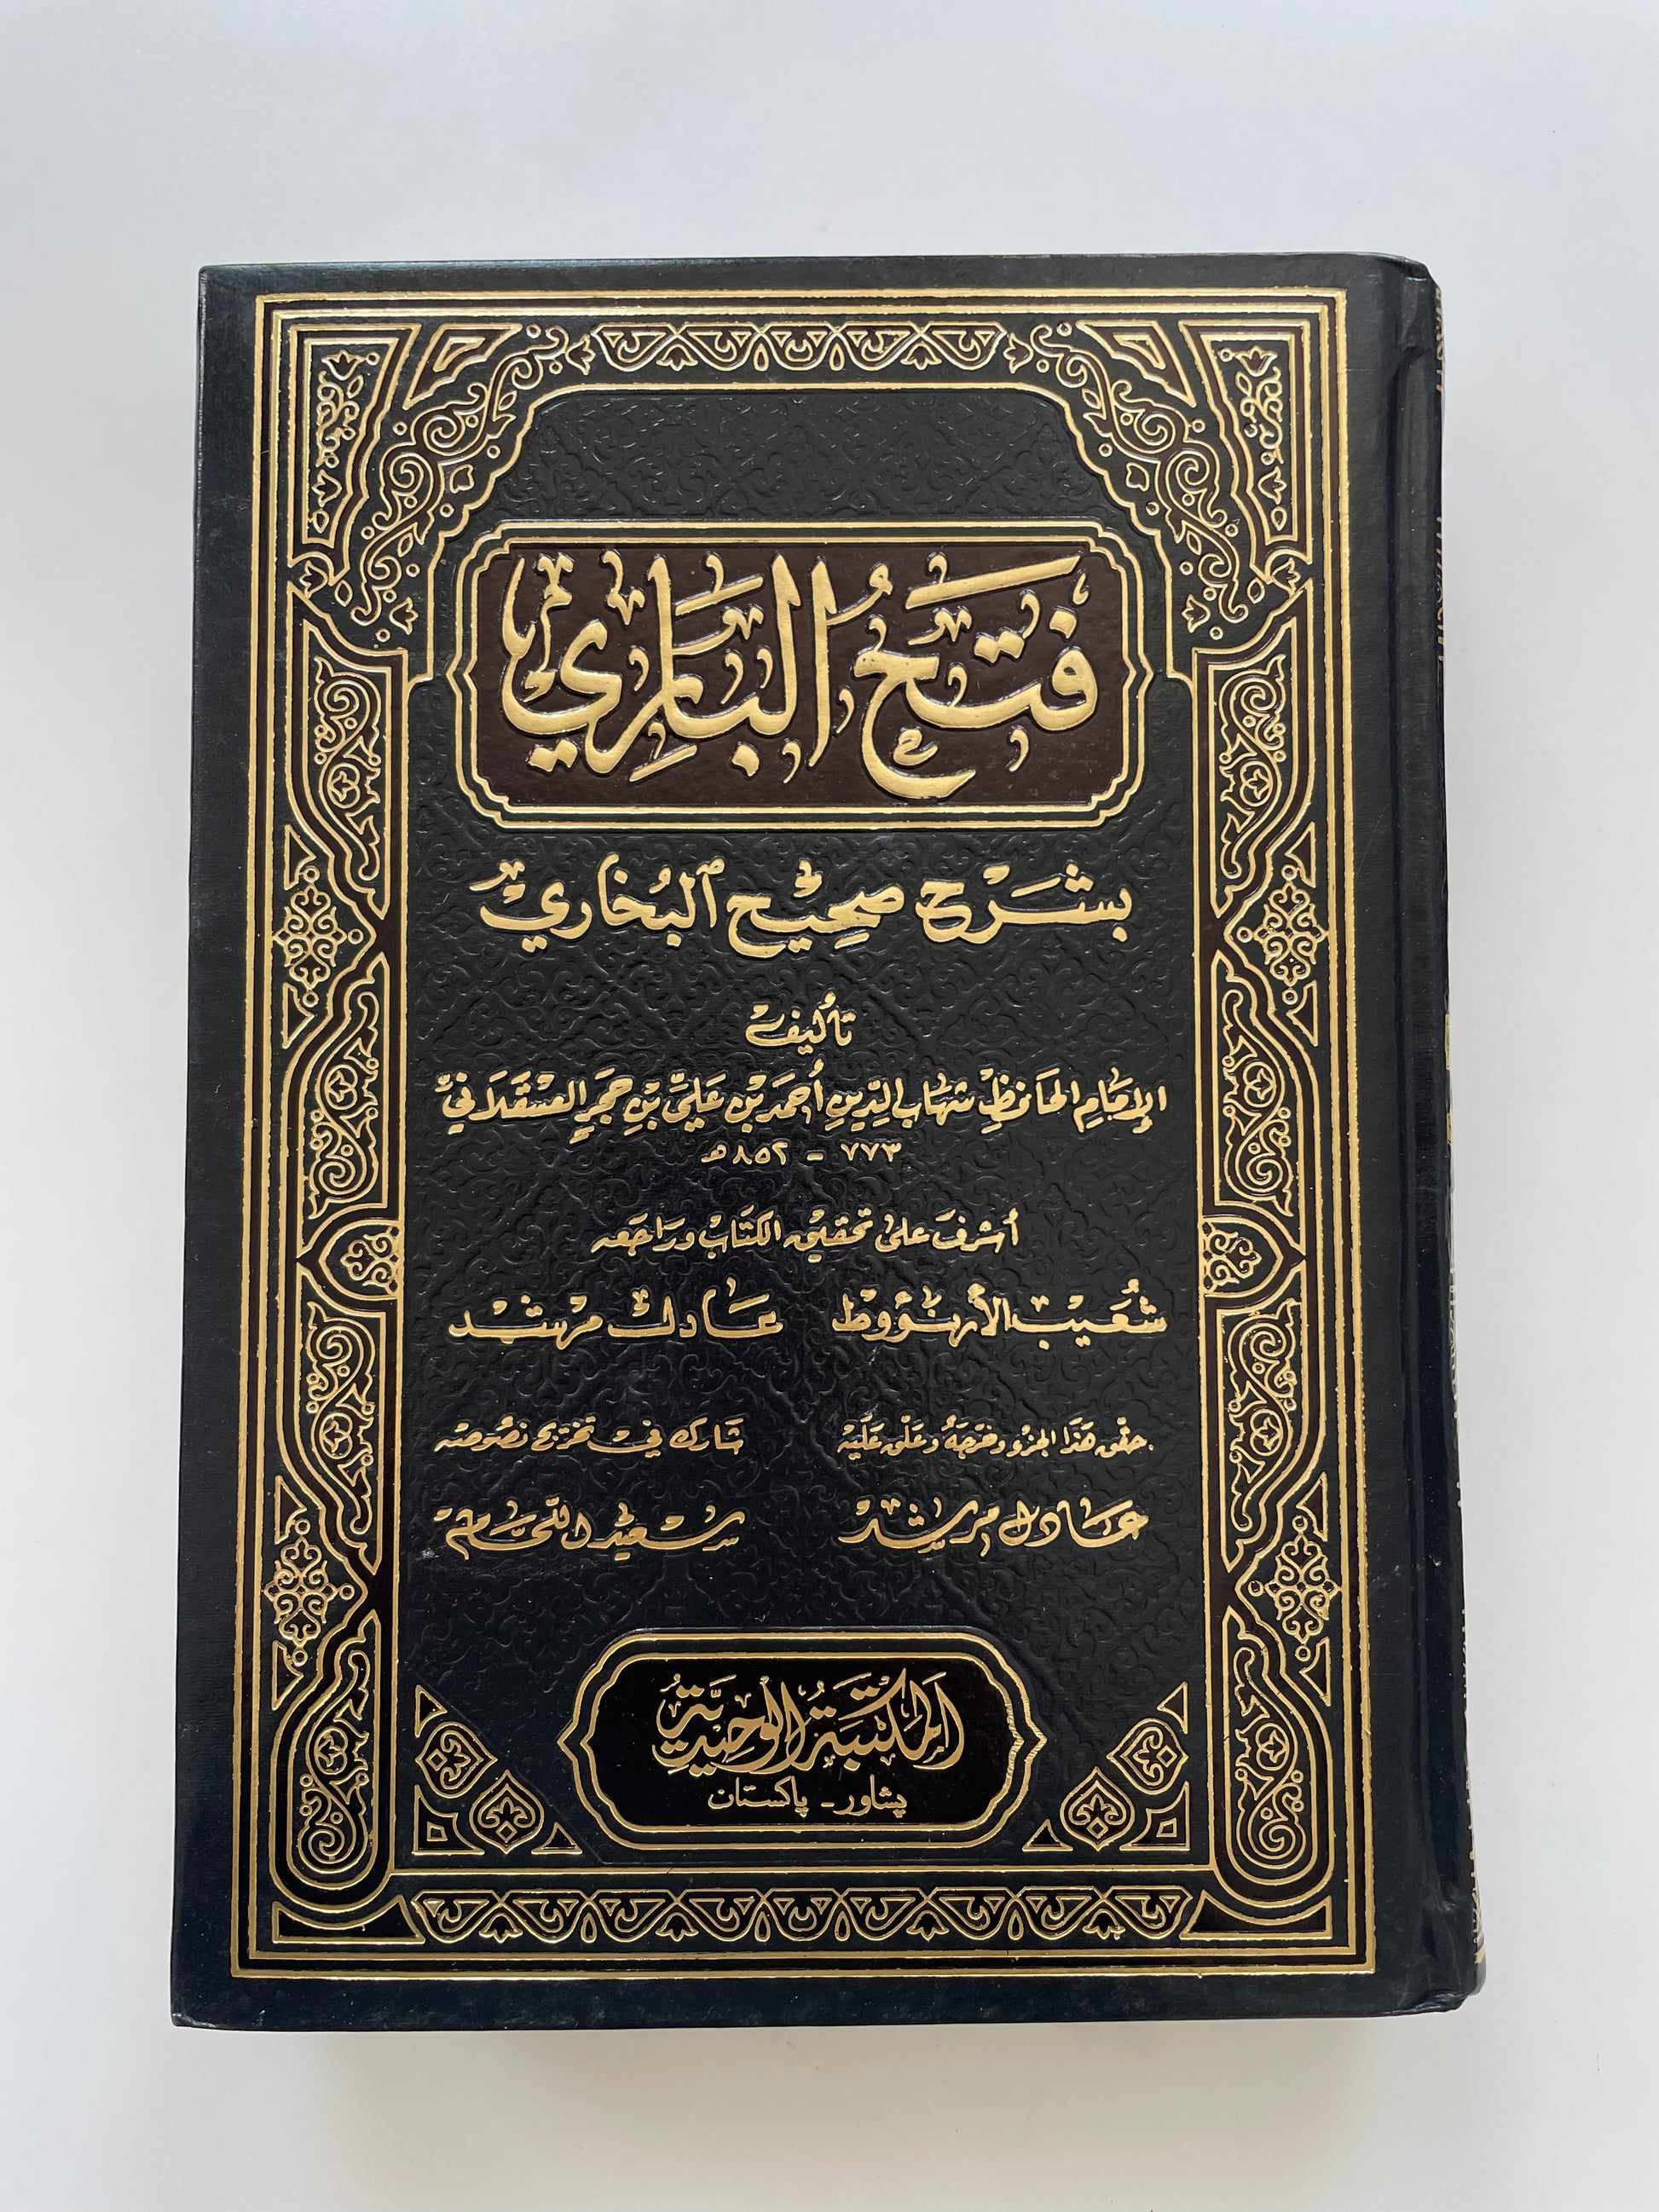 فَتْحُ الْبَارِي
بِشَرْحِ صَحِيْحِ ٱلْبُخَارِيِّ
تَأْلِيفُ
الإِمَامِ الْحَافِظِ شِهَابِ الدِّينِ أَحْمَدَ بْنِ عَلِيِّ بْنِ حَجَرٍ الْعَسْقَلَانِيِّ
٧٧٣ - ٨٥٢ هـ
أَشْرَفَ عَلَى تَحْقِيقِ الْكِتَابِ وَرَاجَعَهُ
شُعَيْبُ الأَرْنَؤُوط عَادِل مُرْشِد
حَقَّقَ هَذَا الْجُزْءَ وَخَرَّجَهُ وَعَلَّقَ عَلَيْهِ شَارَكَ فِي تَخْرِيجِ نُصُوصِهِ
عَادِل مُرْشِد سَعِيْد اللَّحَّام
اَلْمَكْتَبَةُ الْوَحِيدِيَّةُ
پشاور - پاکستان